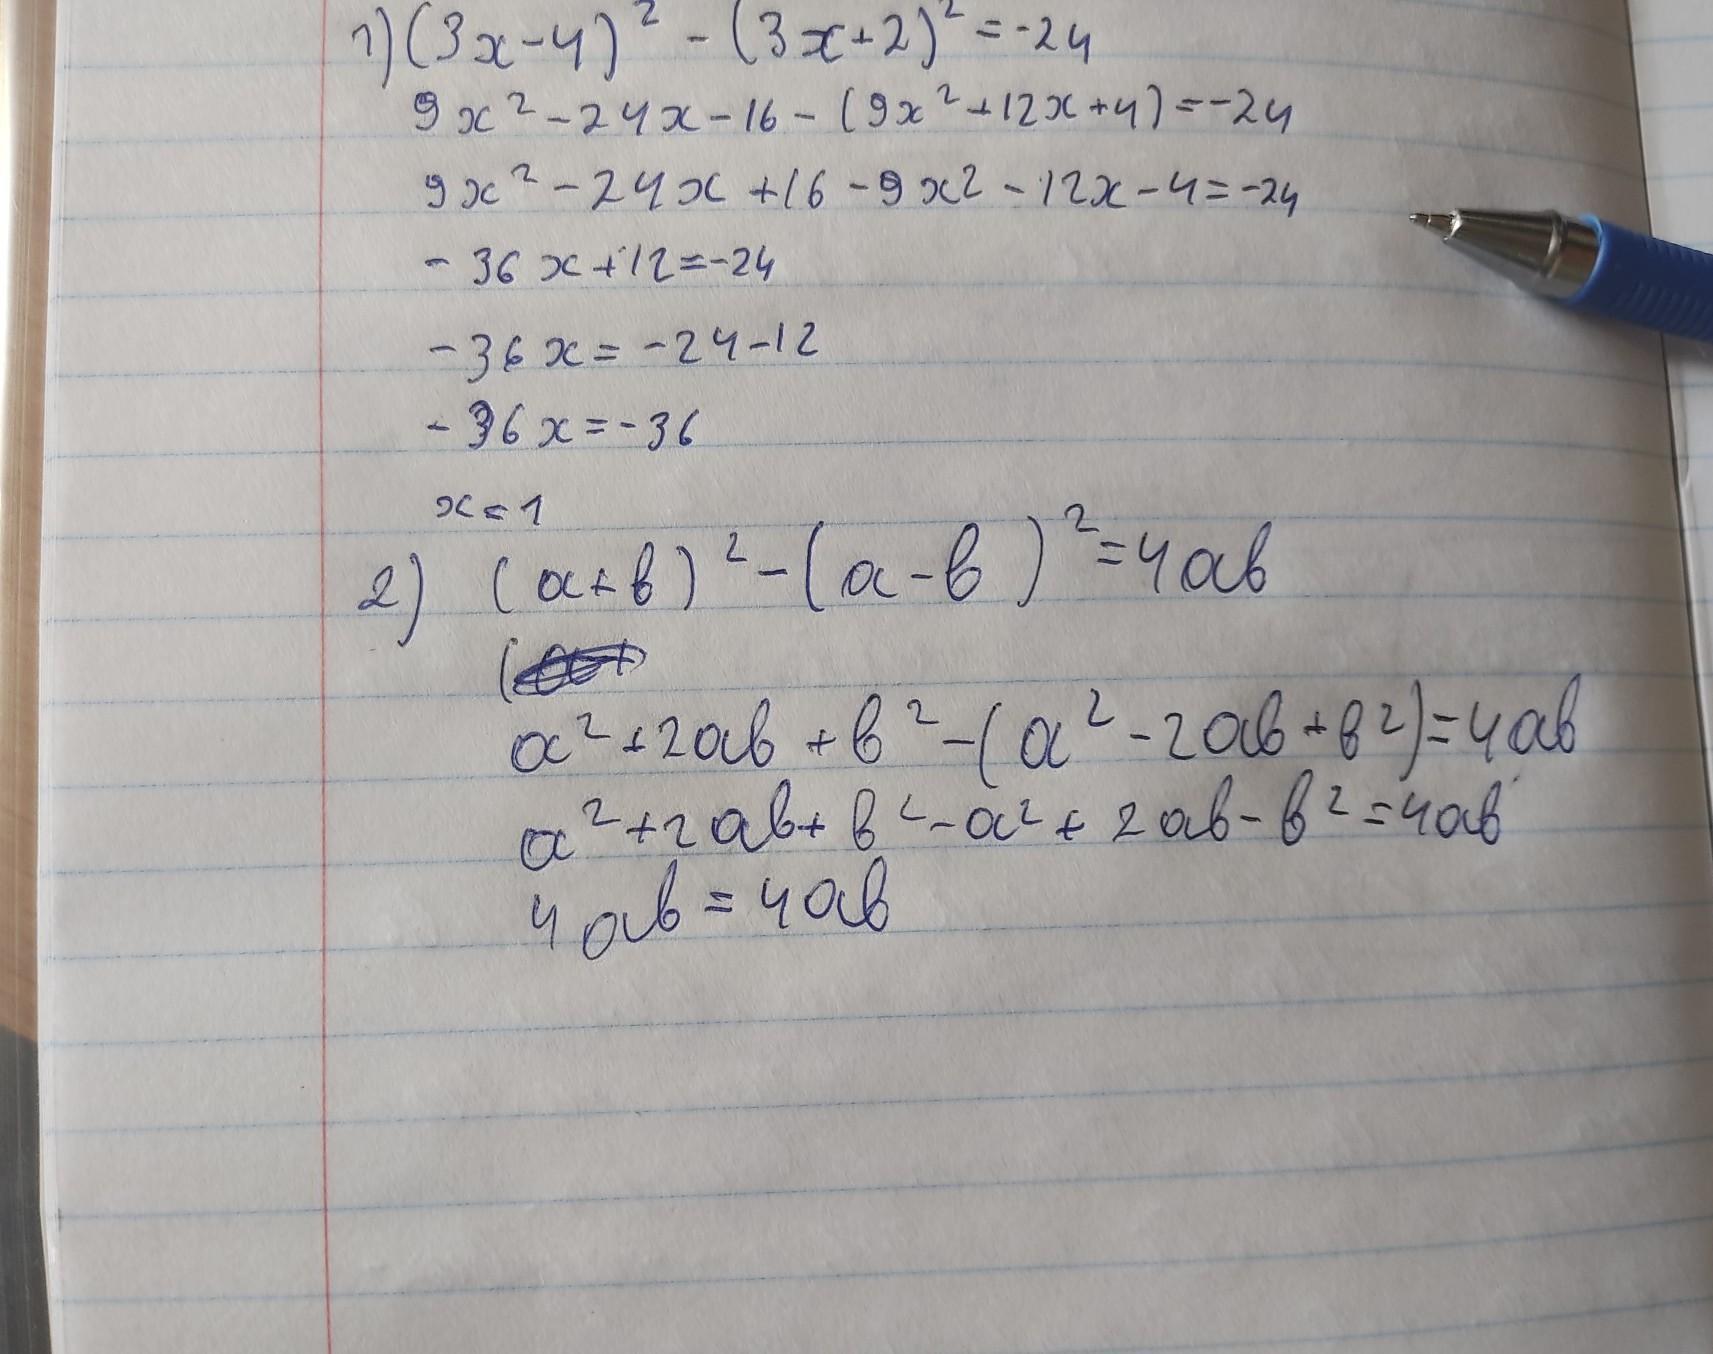 1) (3x-4)² - (3x+2)² = -24
9x² - 24x - 16 - (9x² + 12x + 4) = -24
9x² - 24x + 16 - 9x² - 12x - 4 = -24
- 36x + 12 = -24
- 36x = -24 - 12
- 36x = -36
x = 1
2) (a+b)² - (a-b)² = 4ab
(
a² + 2ab + b² - (a² - 2ab + b²) = 4ab
a² + 2ab + b² - a² + 2ab - b² = 4ab
4ab = 4ab